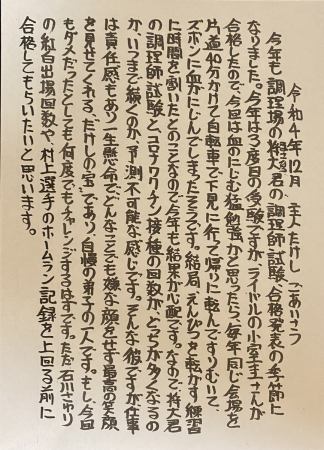 令和4年12月　主人たけし　ごあいさつ
今年も調理場の将大君の調理師試験合格発表の季節に
なりました。今年は3度目の受験ですが、ライバルの小室圭さんが
合格したので、今回は血のにじむ猛勉強かと思ったら、毎年同じ会場を
片道40分かけて自転車で下見に行って帰りに転んですりむいて、
ズボンに血がにじんでしまったそうです。結局、えんぴつを転がす練習
に時間を割いたとのことなので今年も結果が心配です。なので、将大君
の調理師試験と、コロナワクチン接種の回数が、どっちが多くなるの
か、いつまで続くのか、予測不可能な感じです。そんな彼ですが、仕事
は責任感もあり一生懸命でどんなことでも嫌な顔をせず最高の笑顔
を見せてくれる、"たけしの宝"であり、自慢の弟子の一人です。もし、今回
もダメだったとしても何度でもチャレンジするはずです。ただ、石川さゆり
の紅白出場回数や、村上選手のホームラン記録を上回る前に
合格してもらいたいと思います。